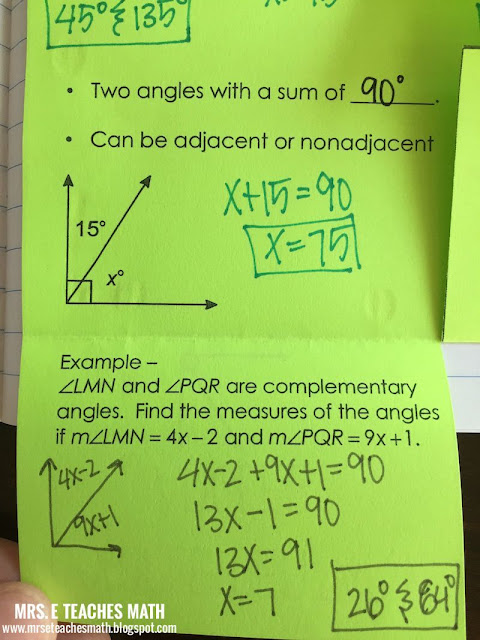 45° & 135°
• Two angles with a sum of 90°.
• Can be adjacent or nonadjacent
15°
x°
x+15=90
x=75
Example –
∠LMN and ∠PQR are complementary
angles. Find the measures of the angles
if m∠LMN = 4x – 2 and m∠PQR = 9x +1.
4x-2
9x+1
4x-2+9x+1=90
13x-1=90
13x=91
x=7
26° & 64°
MRS. E TEACHES MATH
www.mrseteachesmath.blogspot.com